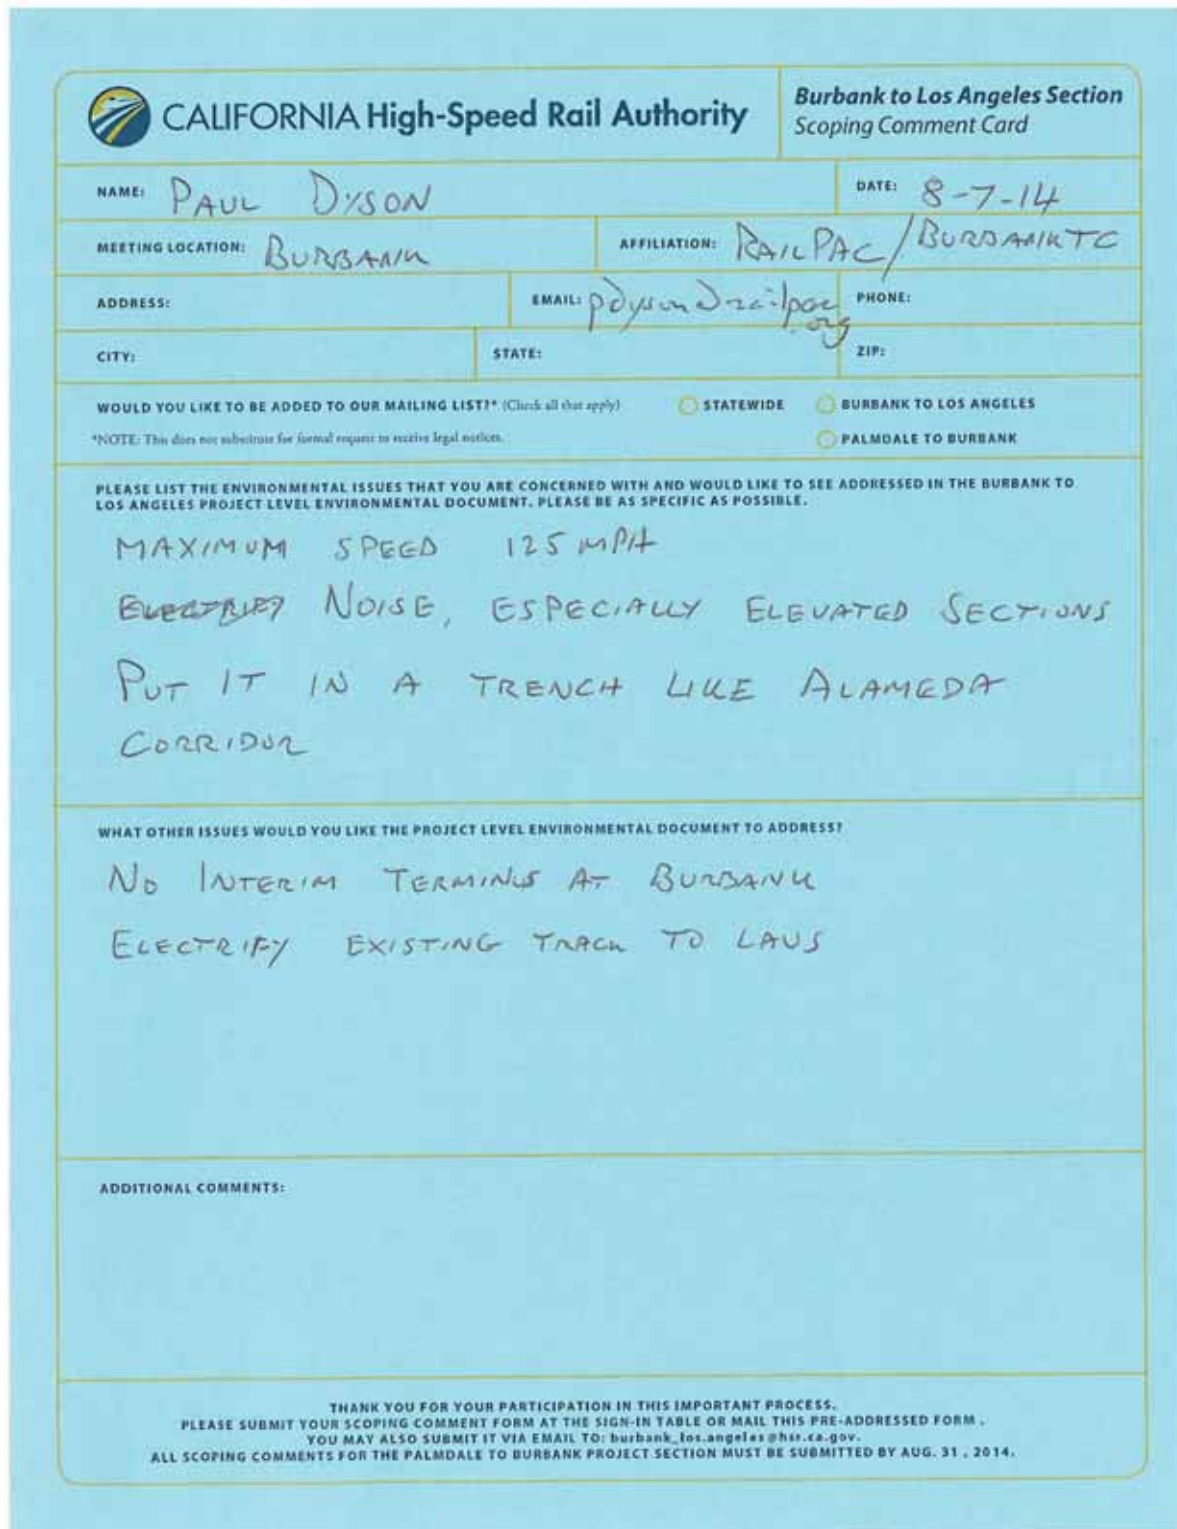 CALIFORNIA High-Speed Rail Authority
Burbank to Los Angeles Section
Scoping Comment Card
NAME: PAUL DYSON
DATE: 8-7-14
MEETING LOCATION: BURBANK
AFFILIATION: RAILPAC/BURBANK TC
ADDRESS:
EMAIL: pdyson@railpac.org
PHONE:
CITY:
STATE:
ZIP:
WOULD YOU LIKE TO BE ADDED TO OUR MAILING LIST?* (Check all that apply)
STATEWIDE
BURBANK TO LOS ANGELES
*NOTE: This does not substitute for formal request to receive legal notices.
PALMDALE TO BURBANK
PLEASE LIST THE ENVIRONMENTAL ISSUES THAT YOU ARE CONCERNED WITH AND WOULD LIKE TO SEE ADDRESSED IN THE BURBANK TO
LOS ANGELES PROJECT LEVEL ENVIRONMENTAL DOCUMENT. PLEASE BE AS SPECIFIC AS POSSIBLE.
MAXIMUM SPEED 125 MPH
ELECTRIFY NOISE, ESPECIALLY ELEVATED SECTIONS
PUT IT IN A TRENCH LIKE ALAMEDA
CORRIDOR
WHAT OTHER ISSUES WOULD YOU LIKE THE PROJECT LEVEL ENVIRONMENTAL DOCUMENT TO ADDRESS?
NO INTERIM TERMINUS AT BURBANK
ELECTRIFY EXISTING TRACK TO LAUS
ADDITIONAL COMMENTS:
THANK YOU FOR YOUR PARTICIPATION IN THIS IMPORTANT PROCESS.
PLEASE SUBMIT YOUR SCOPING COMMENT FORM AT THE SIGN-IN TABLE OR MAIL THIS PRE-ADDRESSED FORM .
YOU MAY ALSO SUBMIT IT VIA EMAIL TO: burbank_los.angeles@hsr.ca.gov.
ALL SCOPING COMMENTS FOR THE PALMDALE TO BURBANK PROJECT SECTION MUST BE SUBMITTED BY AUG. 31 , 2014.